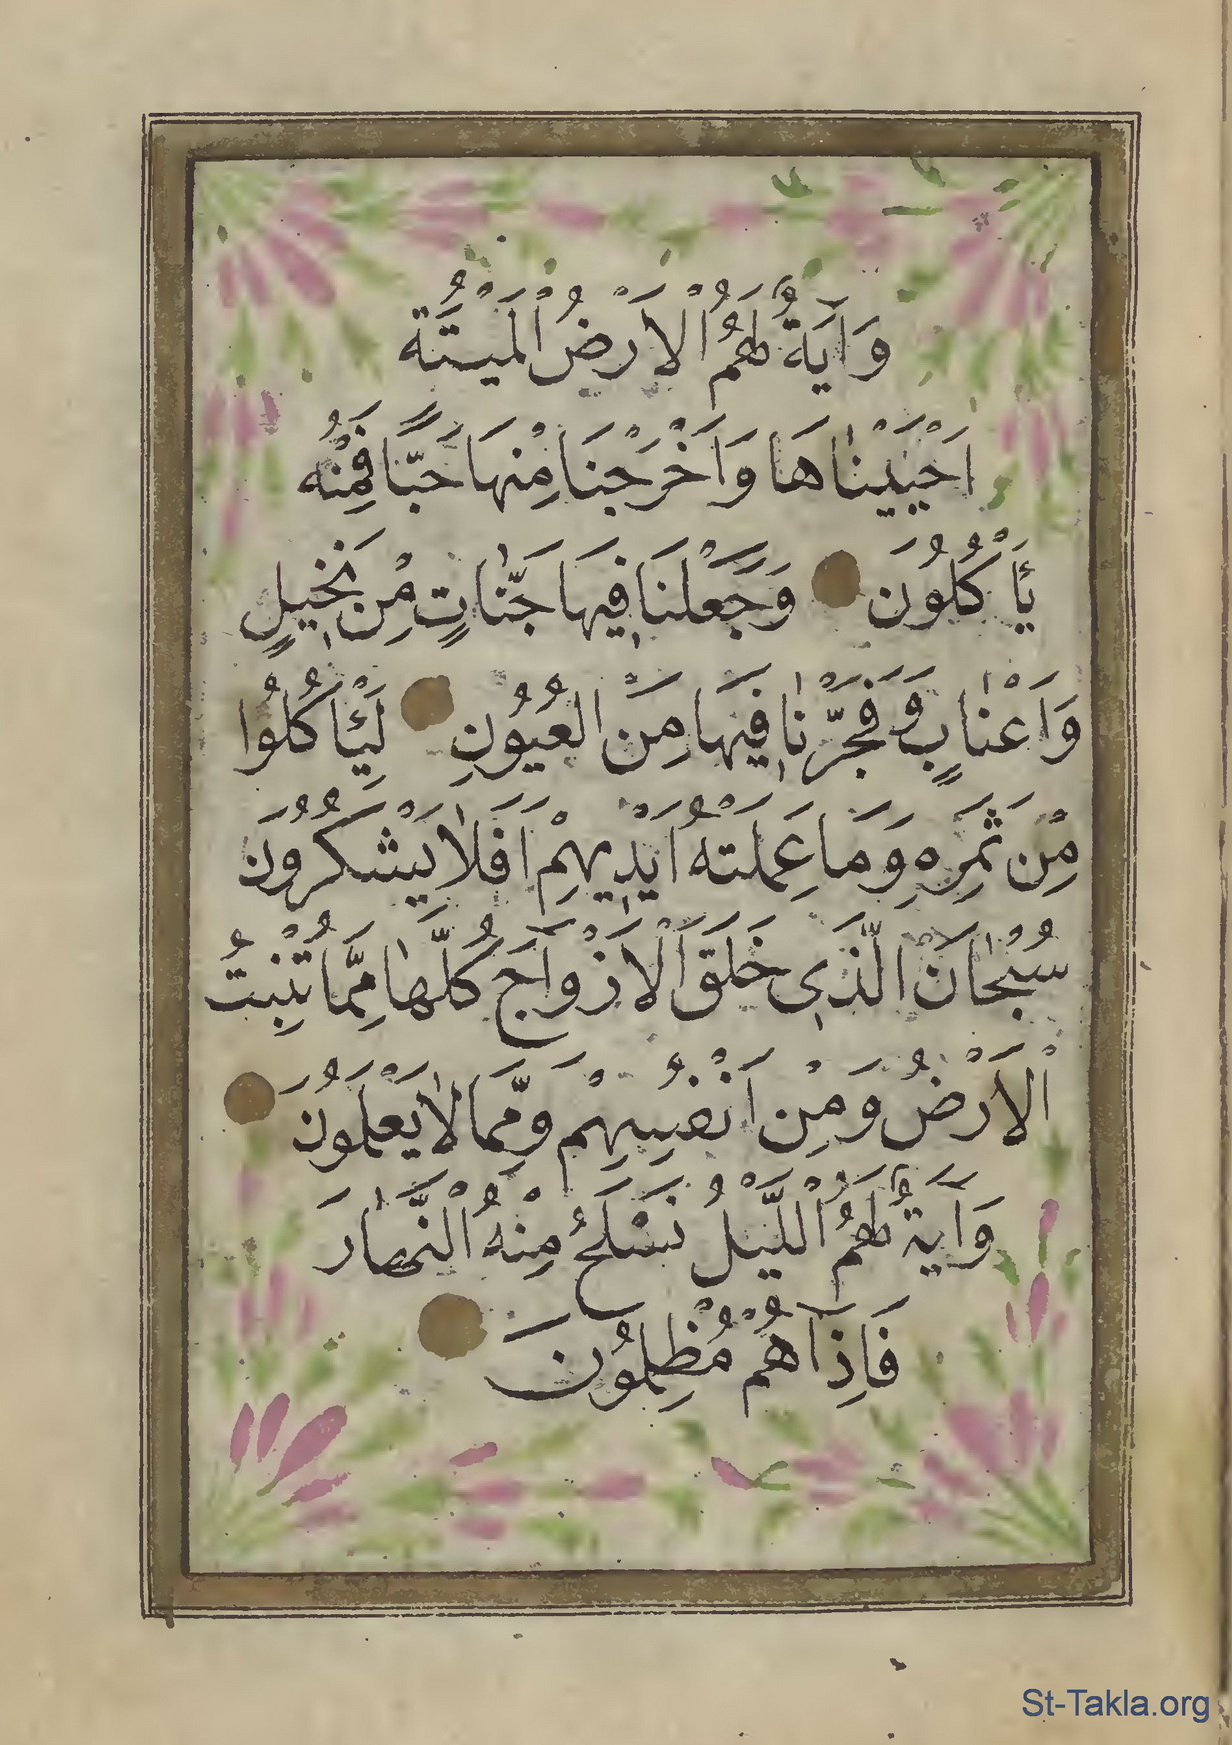 وَاٰيَةٌ لَهُمُ الْاَرْضُ الْمَيْتَةُ
اَحْيَيْنَاهَا وَاَخْرَجْنَا مِنْهَا حَبًّا فَمِنْهُ
يَأْكُلُونَ وَجَعَلْنَا فِيهَا جَنَّاتٍ مِنْ نَخِيلٍ
وَاَعْنَابٍ وَفَجَّرْنَا فِيهَا مِنَ الْعُيُونِ لِيَأْكُلُوا
مِنْ ثَمَرِهِ وَمَا عَمِلَتْهُ اَيْدِيهِمْ اَفَلَا يَشْكُرُونَ
سُبْحَانَ الَّذِى خَلَقَ الْاَزْوَاجَ كُلَّهَا مِمَّا تُنْبِتُ
الْاَرْضُ وَمِنْ اَنْفُسِهِمْ وَمِمَّا لَا يَعْلَمُونَ
وَاٰيَةٌ لَهُمُ الَّليْلُ نَسْلَخُ مِنْهُ النَّهَارَ
فَاِذَا هُمْ مُظْلِمُونَ
St-Takla.org